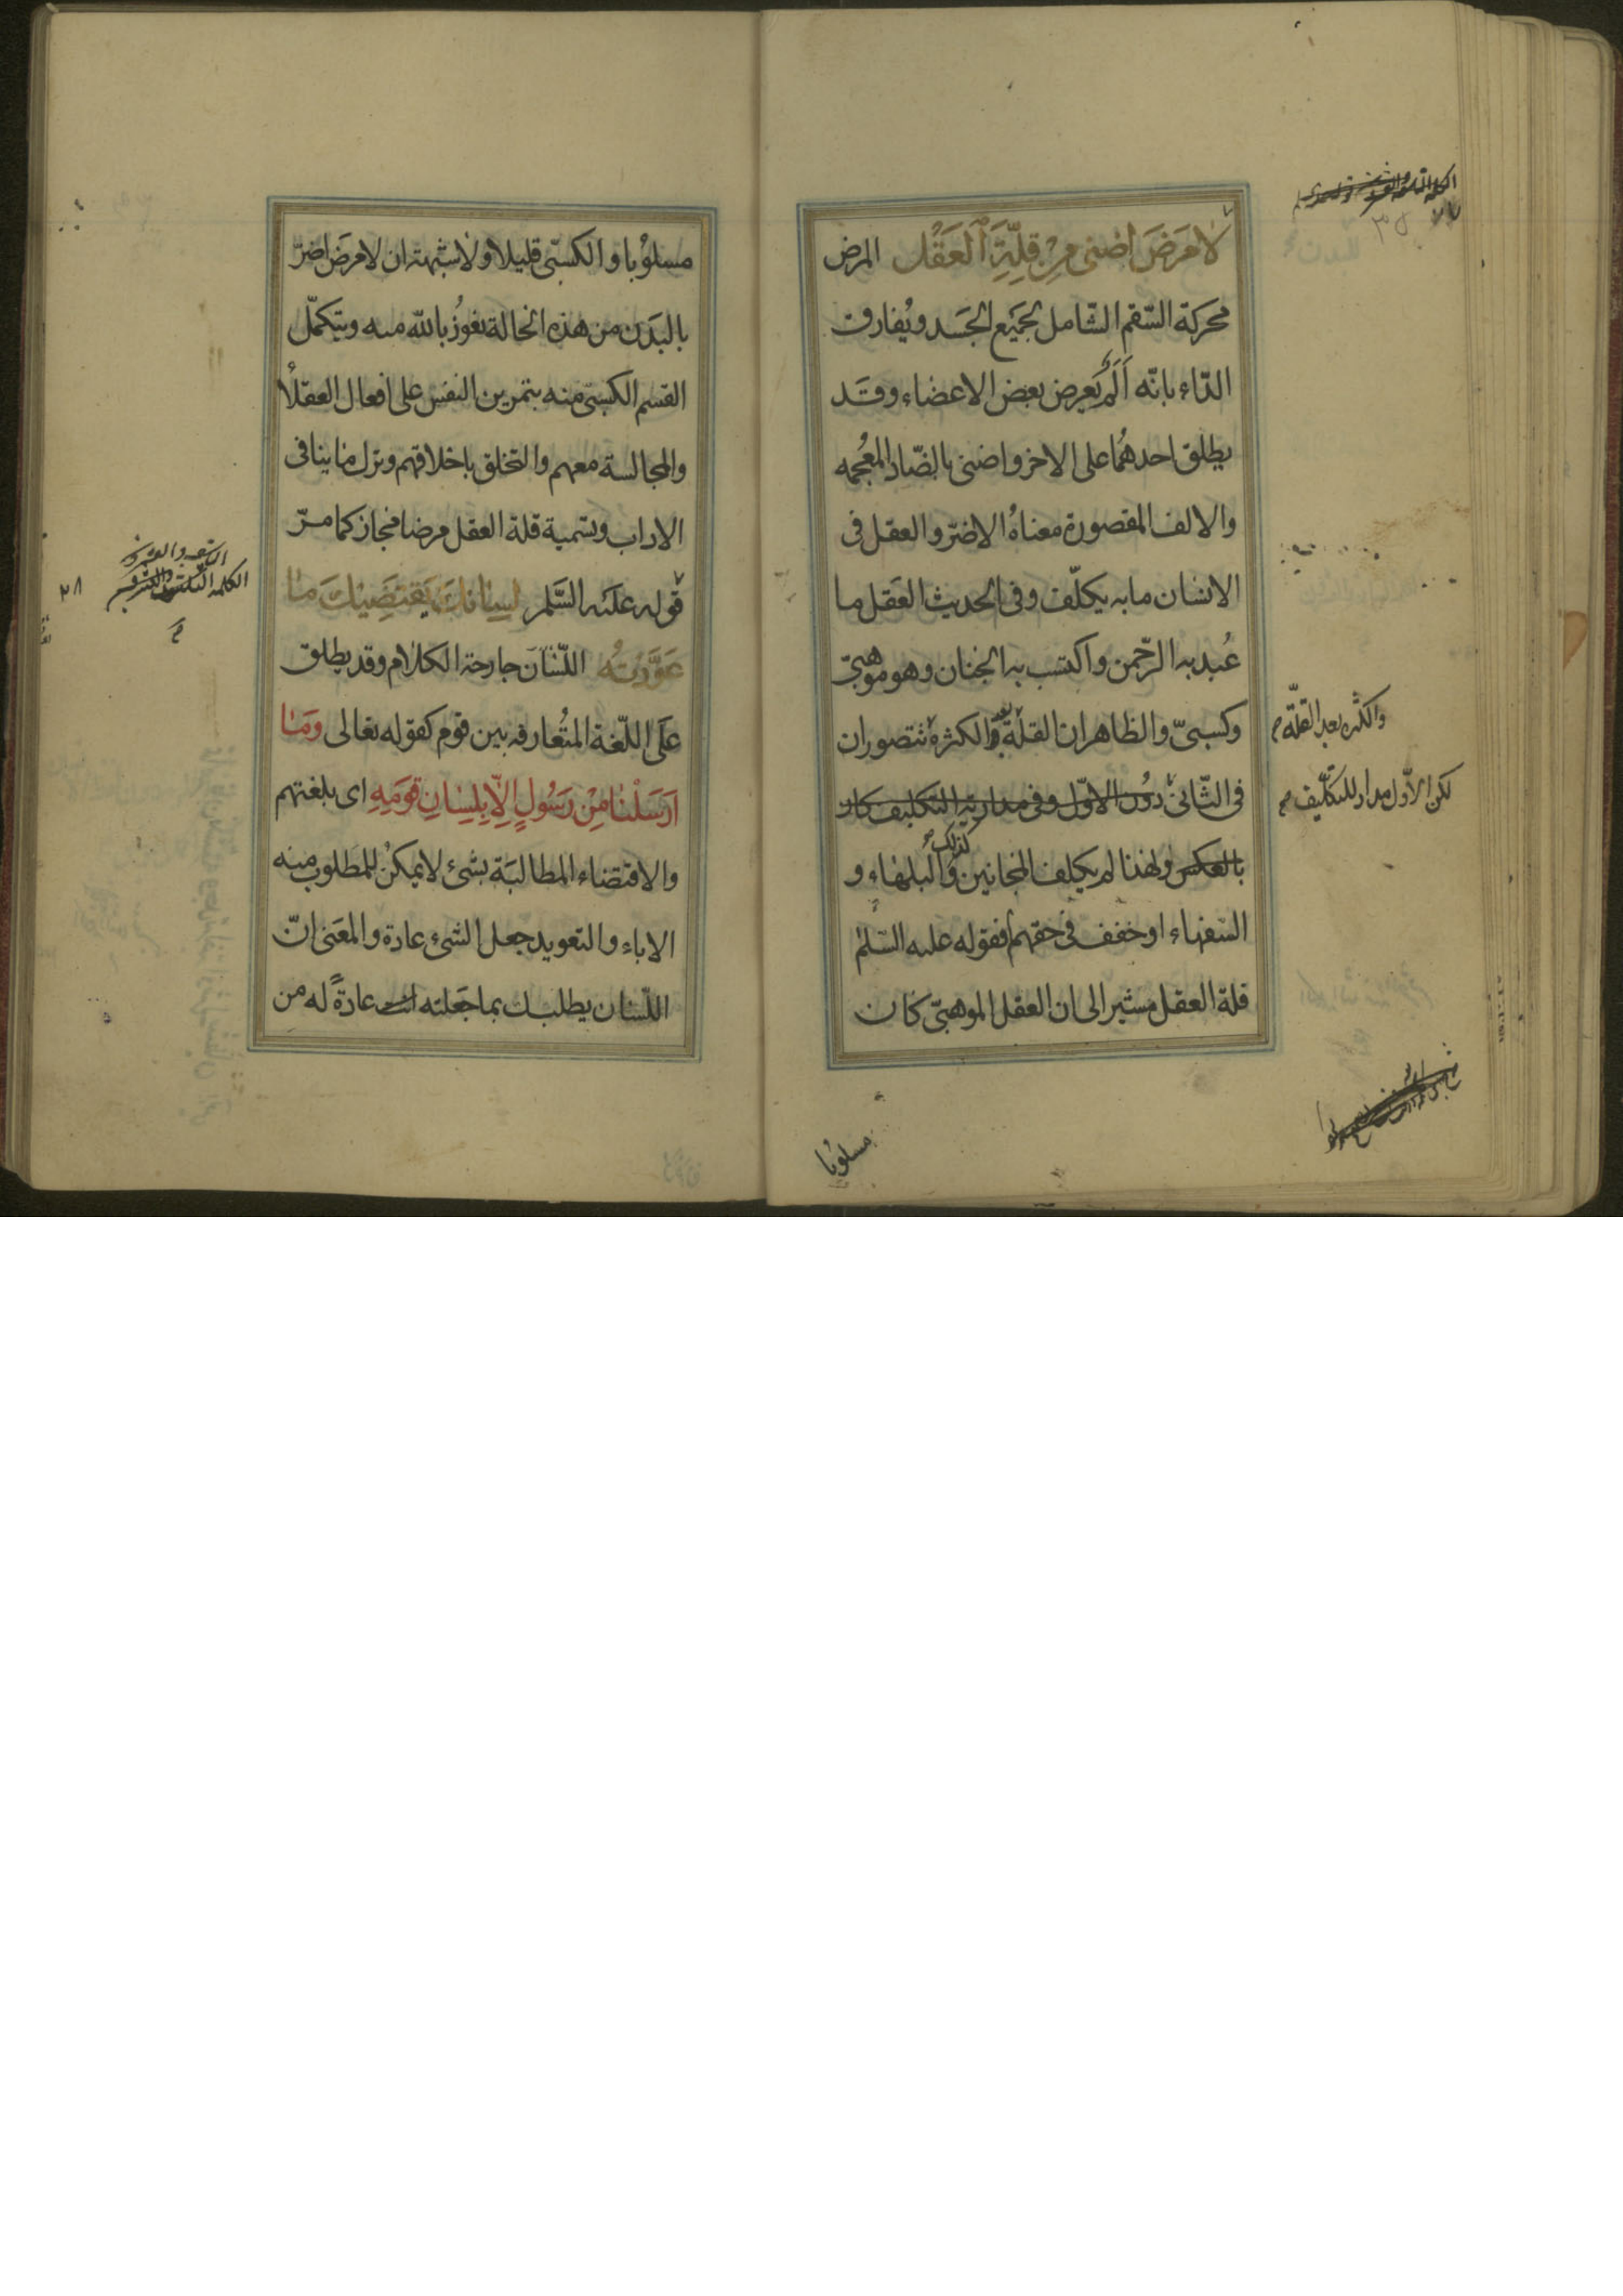 لَا مَرَضَ اَضنى مِنْ قِلَّةِ ٱلعَقْل المرض
محركة السّقم الشّامل لجَميع الجَسَد ويُفارق
الدّاء بانّه اَلَمٌ يَعرض بعض الاعضاء وقَد
يطلق احدهُمَا على الاخر واضنى بالضّاد المعُجمه
والالف المقصورة معناهُ الاضرّ والعقل فى
الانسان ما به يكلّف وفى الحديث العَقل ما
عُبد به الرّحمن واكتسب به الجنان وهو موهبىّ
وكسبىّ والظاهر ان القلّة بعد الكثرة تتصوران
والكثره بعد القلّة
فى الثّانى دُون الاوّل وفى مداريّة التكليف كان
لكن الاوّل مدار للتكليف
بالعكس ولهذا لم يكلف المجانين والبلهاء و
كذلك
السفهاء او خفف فى حقهم فقوله عليه السّلم
قلة العقل مشير الى ان العقل الموهبىّ كان
مسلوبا
مسلوُبا والكسبّى قليلا ولا شبهة ان لا مرَض اضرّ
بالبَدَن من هذه الحالة نعُوذُ بالله منه ويتكمّل
القسم الكسبىّ منه بتمرين النفس على افعال العقلاُ
والمجالسة معهم والتخلق باخلاقهم وترك ما ينافى
الاداب وتسمية قلة العقل مرضا مجاز كما مرّ
قوله علَيْه السَّلم لِسَانُكَ يَقتَضِيْكَ مَا
٢٨
عَوَّدْتَهُ اللّسَان جارحة الكلام وقد يطلق
علَى اللّغة المتُعارفه بين قوم كقوله تعالى وَمَا
اَرْسَلْنَا مِنْ رَسُولٍ اِلّا بِلِسَانِ قَومِهِ اى بلغتهم
والاقتضاء المطالبَة بشئ لا يمكنُ للمطلوب منه
الاباء والتعويد جعل الشئ عادة والمعَنى انّ
اللّسان يطلبك بما جَعلته انت عادةً له من